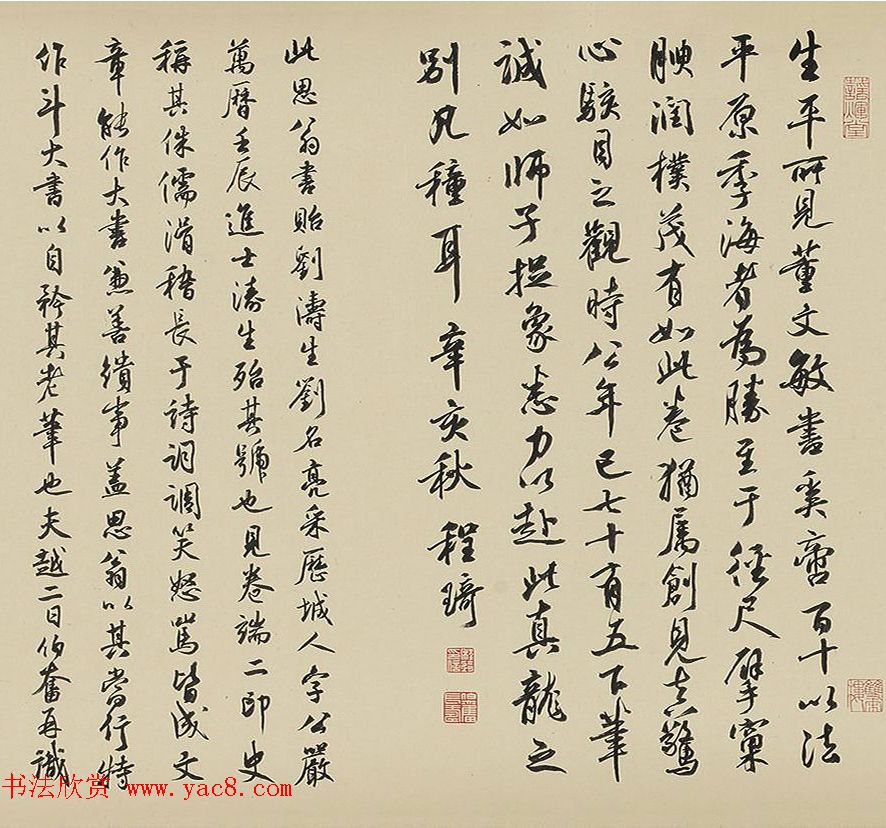 生平所見董文敏書奚啻百十以法
平原季海者為勝至于徑尺擘窠
腴潤樸茂有如此卷猶屬創見真驚
心駭目之觀時公年已七十有五下筆
誠如師子捉象悉力以赴此真龍之
別凡種耳 辛亥秋 程琦
此思翁書貽劉濤生劉名亮采歷城人字公嚴
萬曆壬辰進士濤生殆其號也見卷端二印史
稱其侏儒滑稽長于詩詞調笑怒罵皆成文
章能作大書兼善繢事蓋思翁以其當行特
作斗大書以自矜其老筆也夫越二日伯奮再識
书法欣赏 www.yac8.com